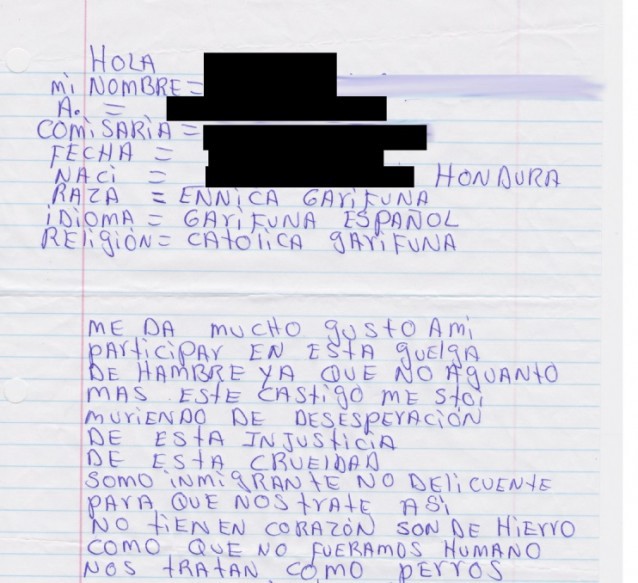 HOLA
mi NOMBRE=
A. =
COMISARIA=
FECHA =
NACI = HONDURA
RAZA = ENNICA GARIFUNA
IDIOMA = GARIFUNA ESPAÑOL
RELIGIÓN= CATOLICA GARIFUNA
ME DA MUCHO GUSTO A Mi
PARTICIPAR EN ESTA GUELGA
DE HAMBRE YA QUE NO AGUANTO
MAS ESTE CASTIGO ME STOI
MURIENDO DE DESESPERACIÓN
DE ESTA INJUSTICIA
DE ESTA CRUELDAD
SOMO INMIGRANTE NO DELICUENTE
PARA QUE NOS TRATE ASI
NO TIENEN CORAZÓN SON DE HIERRO
COMO QUE NO FUERAMOS HUMANO
NOS TRATAN COMO PERROS